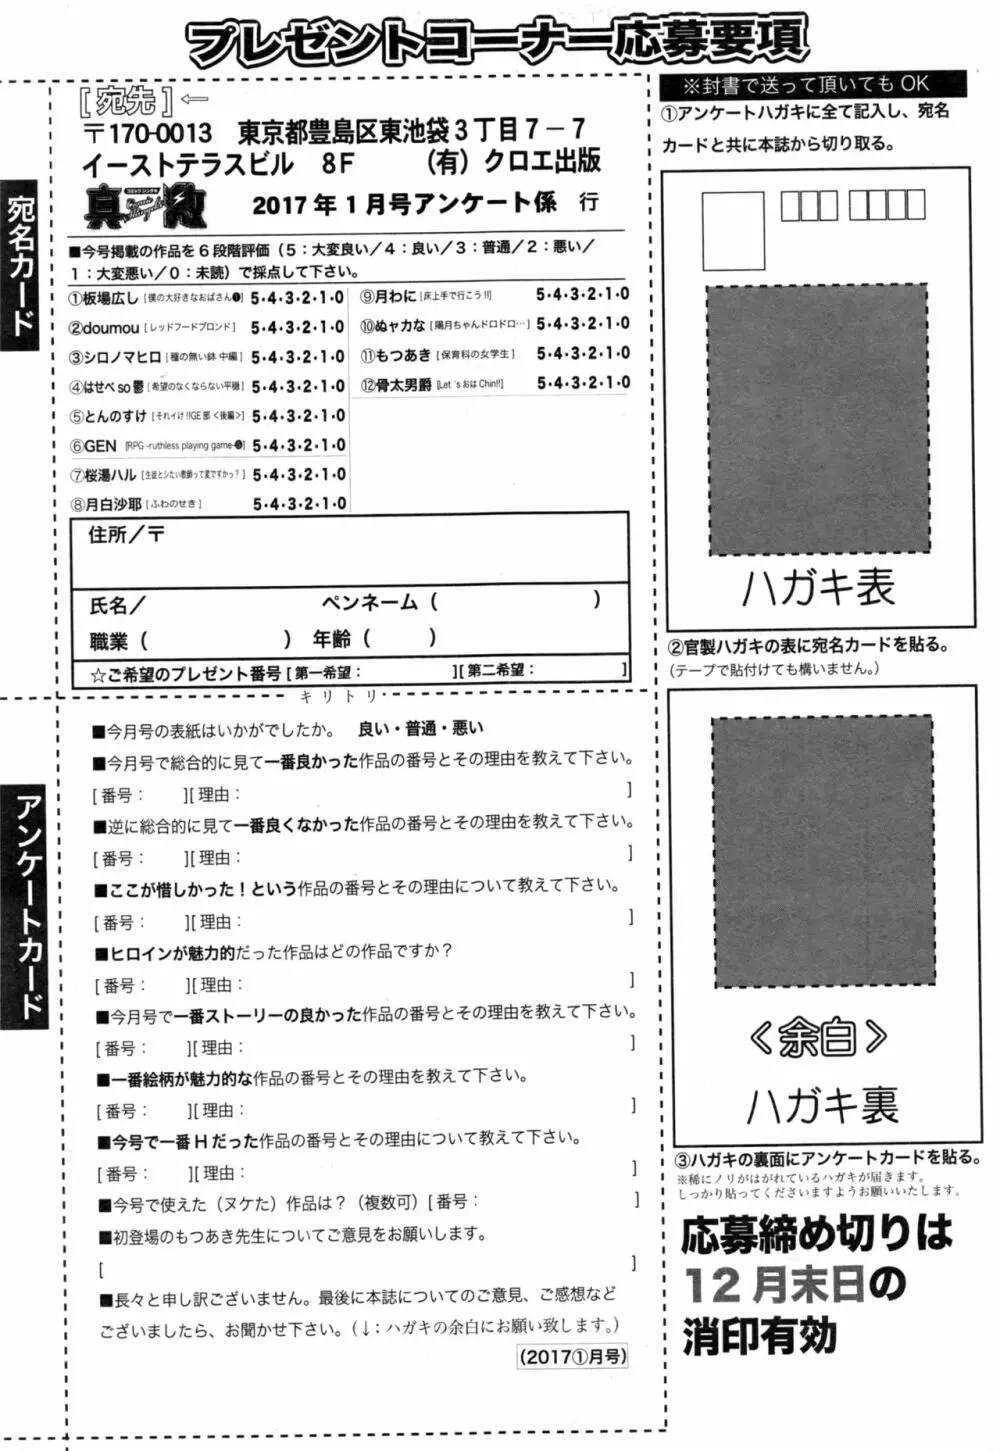 プレゼントコーナー応募要項
[宛先]←
〒170-0013　東京都豊島区東池袋3丁目7-7
イーストテラスビル　8F　　(有)クロエ出版
コミックシンゲキ
真激
2017年1月号アンケート係　行
■今号掲載の作品を6段階評価(5:大変良い/4:良い/3:普通/2:悪い/
1:大変悪い/0:未読)で採点して下さい。
①板場広し[僕の大好きなおばさん❶] 5・4・3・2・1・0
②doumou[レッドフードブロンド] 5・4・3・2・1・0
③シロノマヒロ[種の無い鉢 中編] 5・4・3・2・1・0
④はせべso鬱[希望のなくならない平穏] 5・4・3・2・1・0
⑤とんのすけ[それイけ!!GE部<後編>] 5・4・3・2・1・0
⑥GEN [RPG -ruthless playing game-❺] 5・4・3・2・1・0
⑦桜湯ハル[生徒とシたい教師って変ですかっ?] 5・4・3・2・1・0
⑧月白沙耶[ふわのせき] 5・4・3・2・1・0
⑨月わに[床上手で行こう!!] 5・4・3・2・1・0
⑩ぬャカな[陽月ちゃんドロドロ…] 5・4・3・2・1・0
⑪もつあき[保育科の女学生] 5・4・3・2・1・0
⑫骨太男爵[Let 'sおはChin!!] 5・4・3・2・1・0
住所/〒
氏名/　ペンネーム(　)
職業(　)　年齢(　)
☆ご希望のプレゼント番号[第一希望:　][第二希望:　]
キリトリ
宛名カード
アンケートカード
■今月号の表紙はいかがでしたか。　良い・普通・悪い
■今月号で総合的に見て一番良かった作品の番号とその理由を教えて下さい。
[番号:　][理由:　]
■逆に総合的に見て一番良くなかった作品の番号とその理由を教えて下さい。
[番号:　][理由:　]
■ここが惜しかった!という作品の番号とその理由について教えて下さい。
[番号:　][理由:　]
■ヒロインが魅力的だった作品はどの作品ですか?
[番号:　][理由:　]
■今月号で一番ストーリーの良かった作品の番号とその理由を教えて下さい。
[番号:　][理由:　]
■一番絵柄が魅力的な作品の番号とその理由を教えて下さい。
[番号:　][理由:　]
■今号で一番Hだった作品の番号とその理由について教えて下さい。
[番号:　][理由:　]
■今号で使えた(ヌケた)作品は?(複数可)[番号:　]
■初登場のもつあき先生についてご意見をお願いします。
[　]
■長々と申し訳ございません。最後に本誌についてのご意見、ご感想など
ございましたら、お聞かせ下さい。(↓:ハガキの余白にお願い致します。)
(2017①月号)
※封書で送って頂いてもOK
①アンケートハガキに全て記入し、宛名
カードと共に本誌から切り取る。
ハガキ表
②官製ハガキの表に宛名カードを貼る。
(テープで貼付けても構いません。)
<余白>
ハガキ裏
③ハガキの裏面にアンケートカードを貼る。
※稀にノリがはがれているハガキが届きます。
しっかり貼ってくださいますようお願いいたします。
応募締め切りは
12月末日の
消印有効